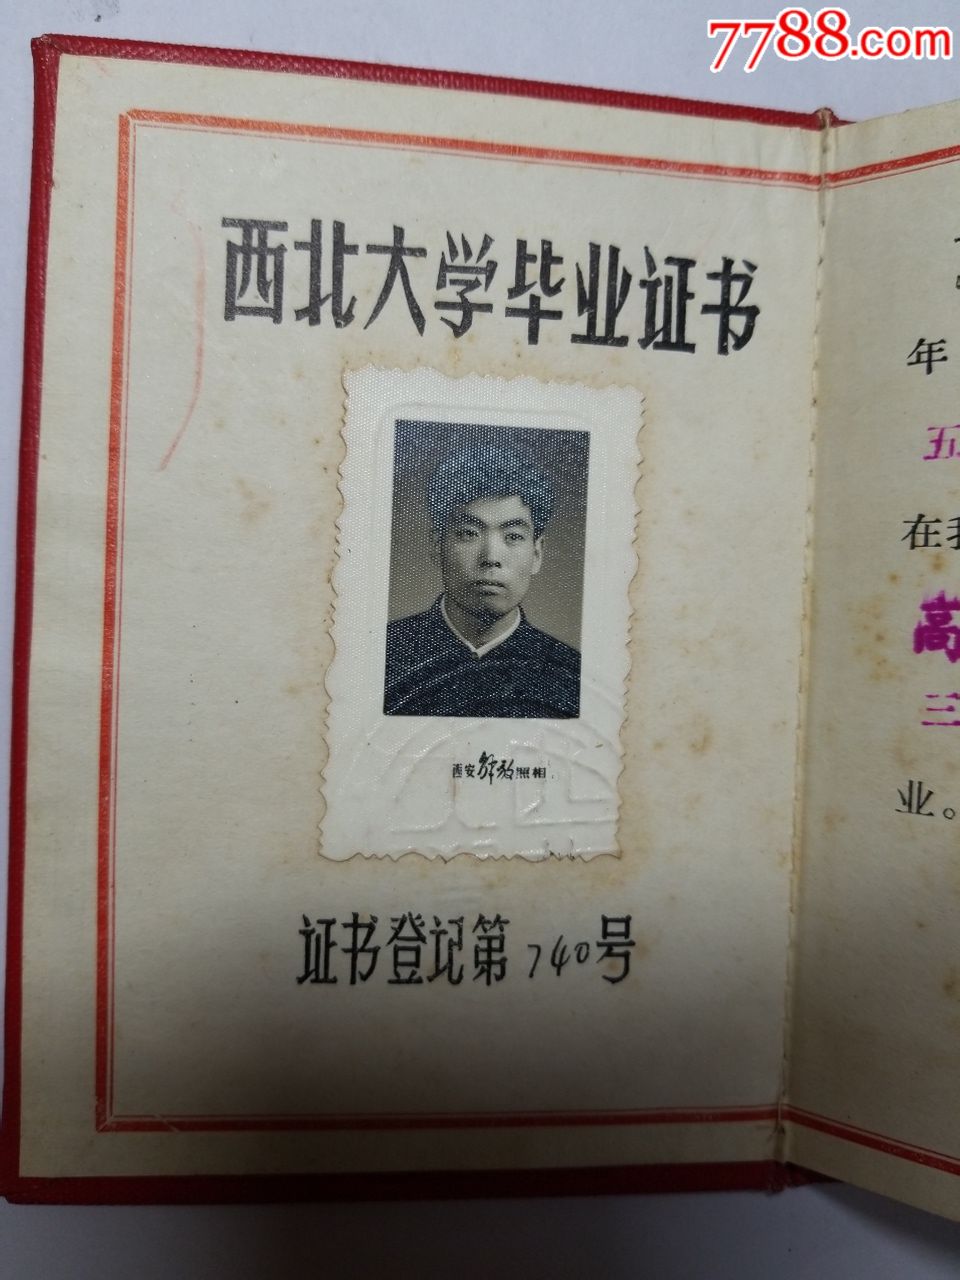 7788.com
西北大学毕业证书
西安解放照相
证书登记第740号
年
五
在我
高
三
业。